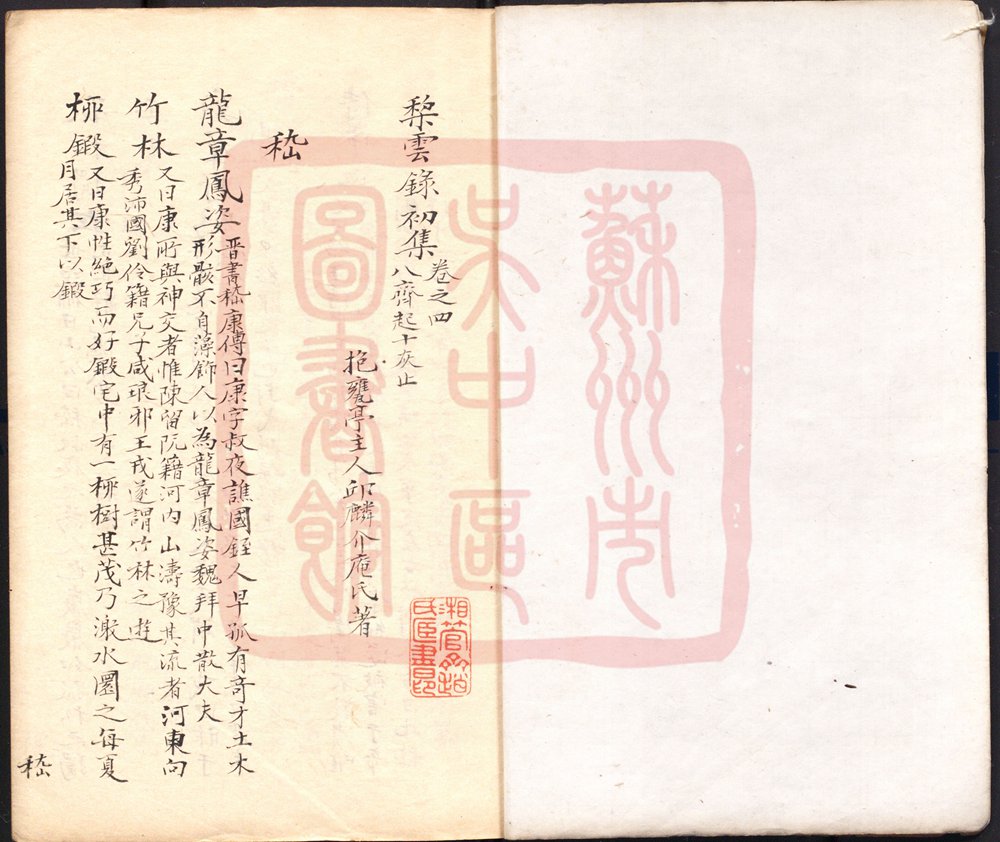 梨雲錄初集卷之四
八齊起十灰止
抱甕亭主人邱麟介庵氏著
嵇
龍章鳳姿晉書嵇康傳曰康字叔夜譙國銍人早孤有奇才土木
形骸不自藻飾人以為龍章鳳姿魏拜中散大夫
竹林又曰康所與神交者惟陳留阮籍河內山濤豫其流者河東向
秀沛國劉伶籍兄子咸琅邪王戎遂謂竹林之遊
柳鍛又曰康性絕巧而好鍛宅中有一柳樹甚茂乃激水圜之每夏
月居其下以鍛
嵇
蘇州市
吳中區
圖書館